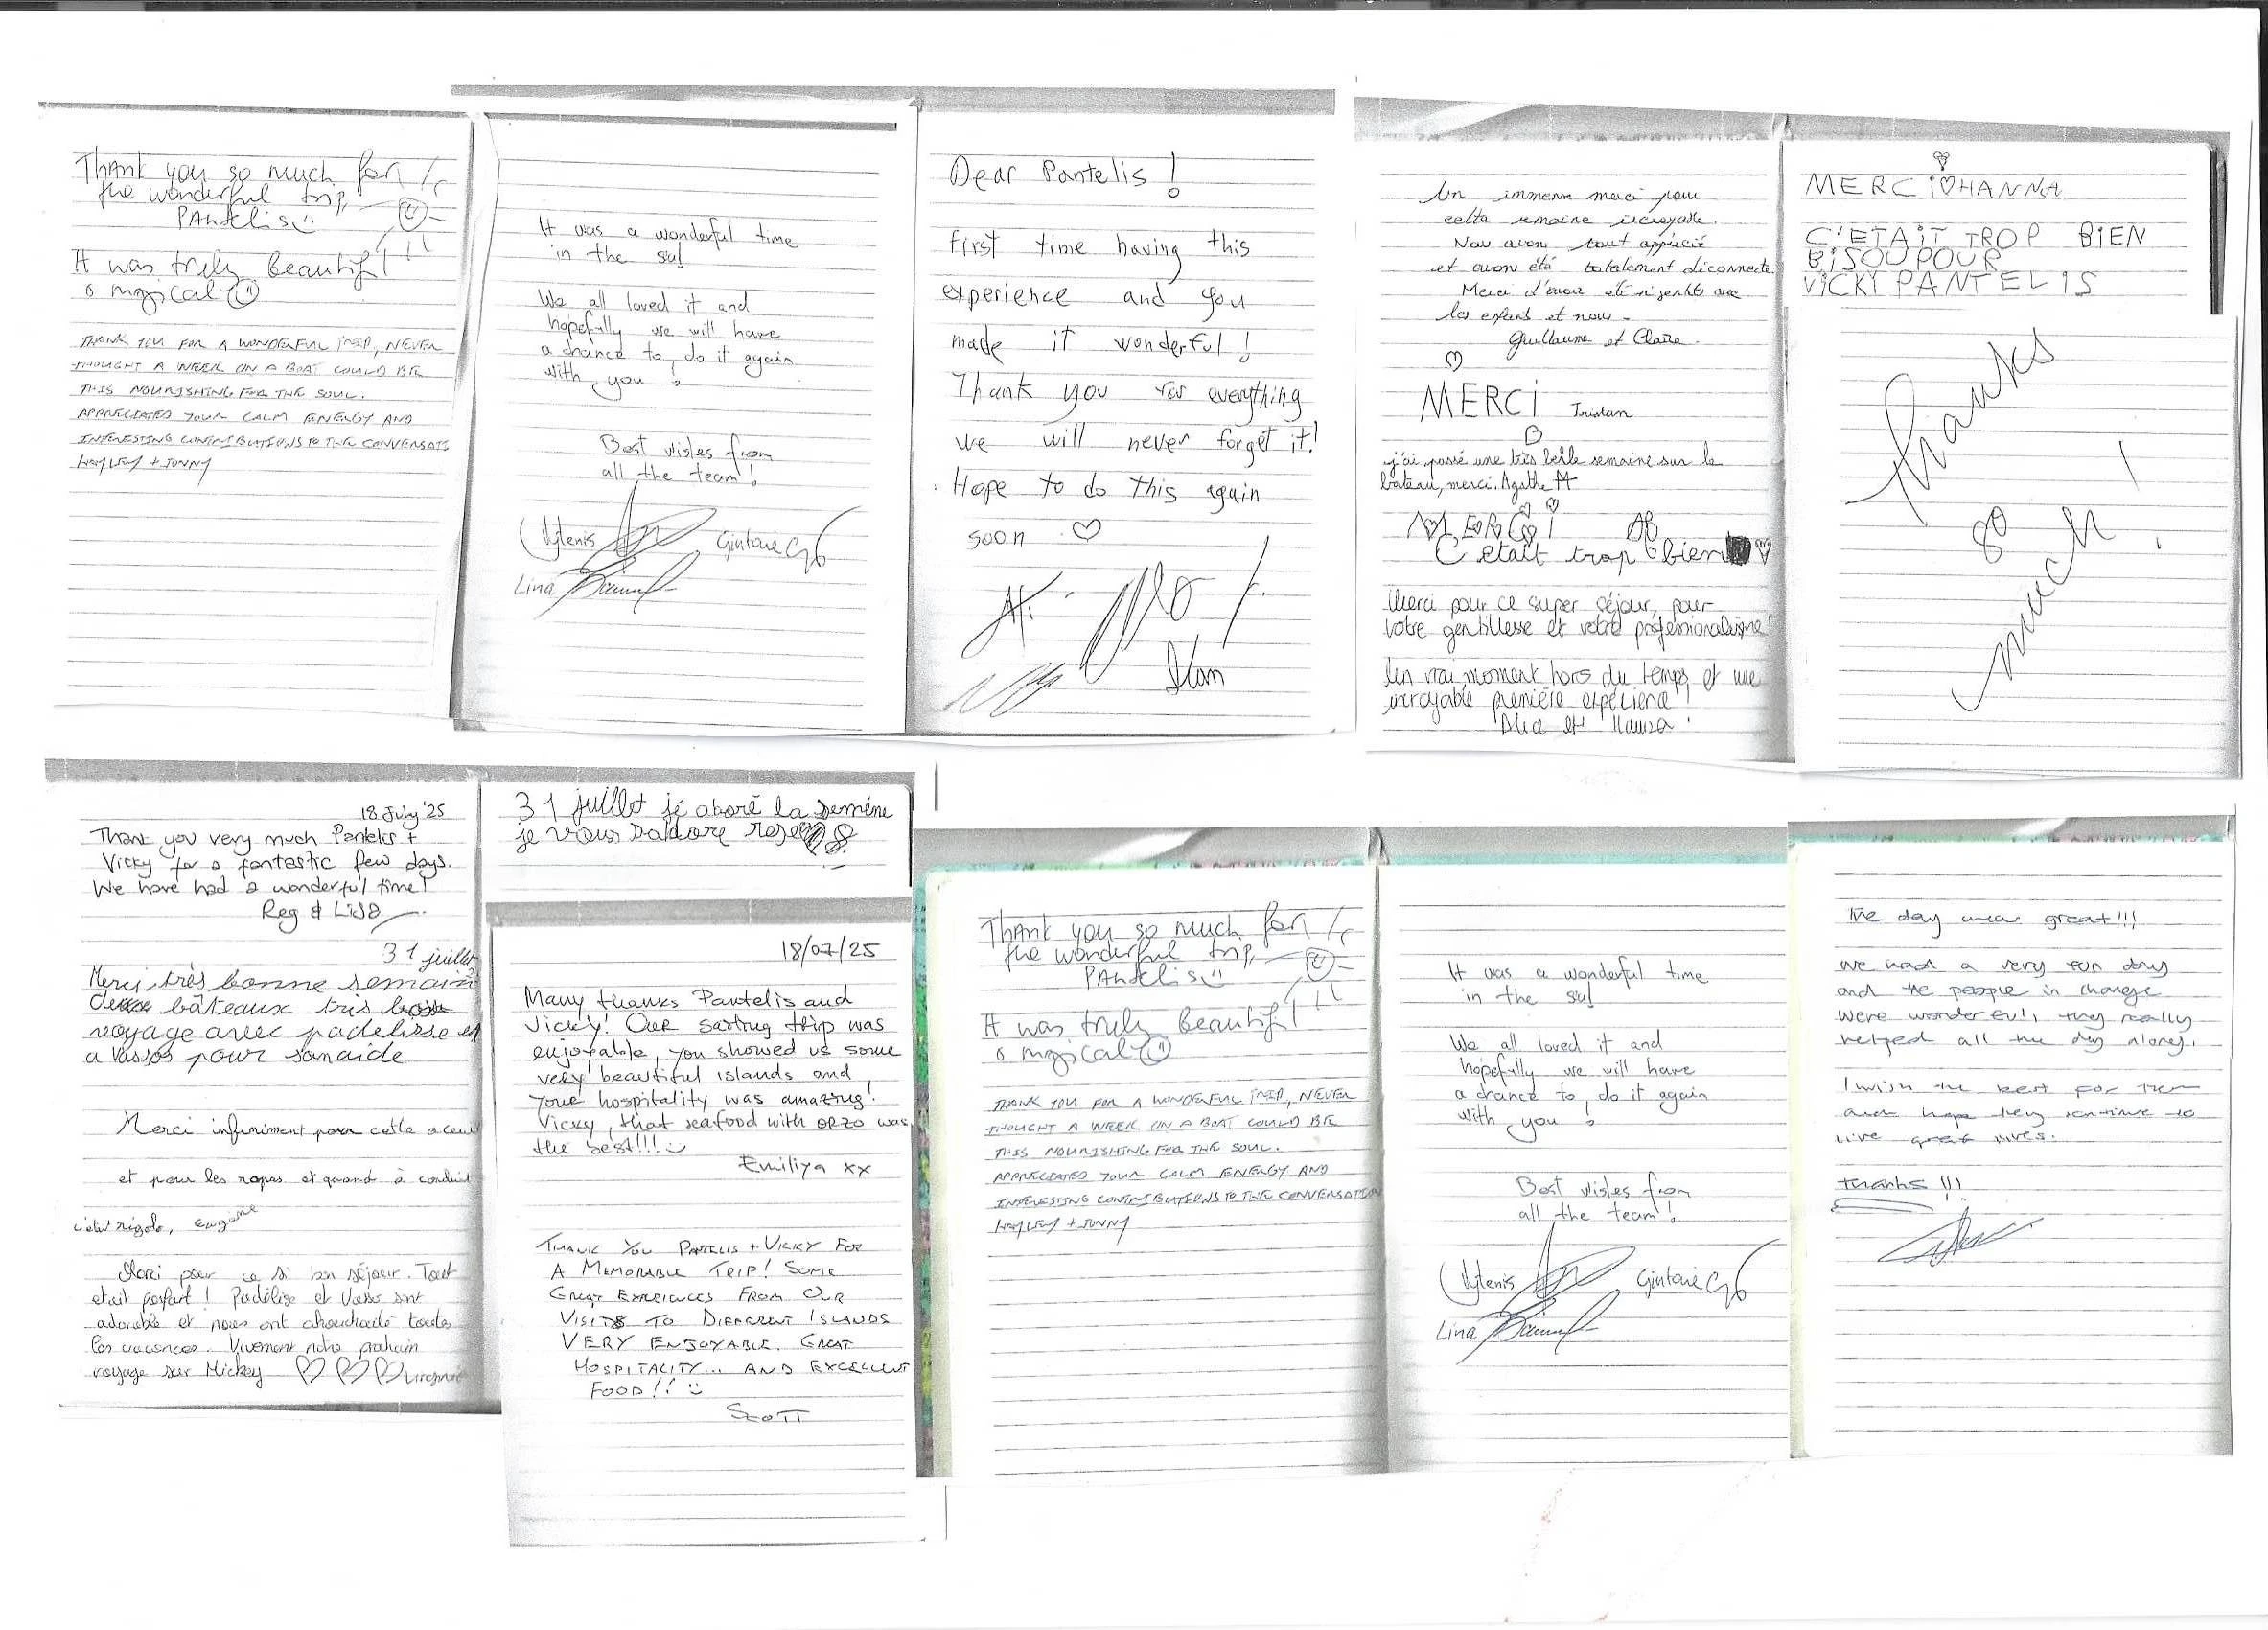 Thank you so much for
the wonderful trip,
PAntelis
It was truly Beautiful
& magical
THANK YOU FOR A WONDERFUL TRIP, NEVER
THOUGHT A WEEK ON A BOAT COULD BE
THIS NOURISHING FOR THE SOUL.
APPRECIATED YOUR CALM ENERGY AND
INTERESTING CONTRIBUTIONS TO THE CONVERSATI
HAYLEY + JONNY
It was a wonderful time
in the
We all loved it and
hopefully we will have
a chance to do it again
with you !
Best wishes from
all the team!
Vytenis
Gintarė
Lina
Dear Pantelis !
First time having this
experience and you
made it wonderful !
Thank you for everything
we will never forget it!
Hope to do this again
soon
Ilan
Un immense merci pour
cette semaine incroyable.
Nous avons tout apprécié
et avons été totalement déconnecté
Merci d'avoir été si gentils avec
les enfants et nous.
Guillaume et Claire
MERCI Tristan
j'ai passé une très belle semaine sur le
bateau, merci. Agathe
MERCI
C'était trop bien
Merci pour ce super séjour, pour
votre gentillesse et votre professionalisme!
Un vrai moment hors du temps et une
incroyable première expérience !
et
MERCI HANNA
C'ETAIT TROP BIEN
BISOU POUR
VICKY PANTELIS
Thanks
so
much !
18 July '25
Thank you very much Pantelis +
Vicky for a fantastic few days.
We have had a wonderful time!
Reg & Lisa
31 juillet
Merci, très bonne semain
bâteaux très
voyage avec padelisse et
a Vassos pour sanaide
Merci infiniment pour cette
et pour les repas et quand à conduit
c'était rigolo, Eugénie
Merci pour ce si bon séjour. Tout
etait parfait ! Padélise et Vasso sont
adorable et nous ont chouchouté toutes
les vacances. Vivement notre prochain
voyage sur Mickey Virginie
31 juillet jé adoré la semène
je vous
18/07/25
Many thanks Pantelis and
Vicky! Our sailing trip was
enjoyable, you showed us some
very beautiful islands and
your hospitality was amazing!
Vicky, that seafood with orzo was
the best!!!
Emiliya xx
THANK YOU PANTELIS + VICKY FOR
A MEMORABLE TRIP! SOME
GREAT EXPERIENCES FROM OUR
VISITS TO DIFFERENT ISLANDS
VERY ENJOYABLE. GREAT
HOSPITALITY... AND EXCELLENT
FOOD!!
SCOTT
Thank you so much for
the wonderful trip,
PAntelis
It was truly Beautiful
& magical
THANK YOU FOR A WONDERFUL TRIP, NEVER
THOUGHT A WEEK ON A BOAT COULD BE
THIS NOURISHING FOR THE SOUL.
APPRECIATED YOUR CALM ENERGY AND
INTERESTING CONTRIBUTIONS TO THE CONVERSATION
HAYLEY + JONNY
It was a wonderful time
in the
We all loved it and
hopefully we will have
a chance to do it again
with you !
Best wishes from
all the team!
Vytenis
Gintarė
Lina
The day was great!!!
We had a very fun day
and the people in charge
were wonderful, they really
helped all the day along.
I wish the best for them
and hope they continue to
live great lives.
Thanks !!!